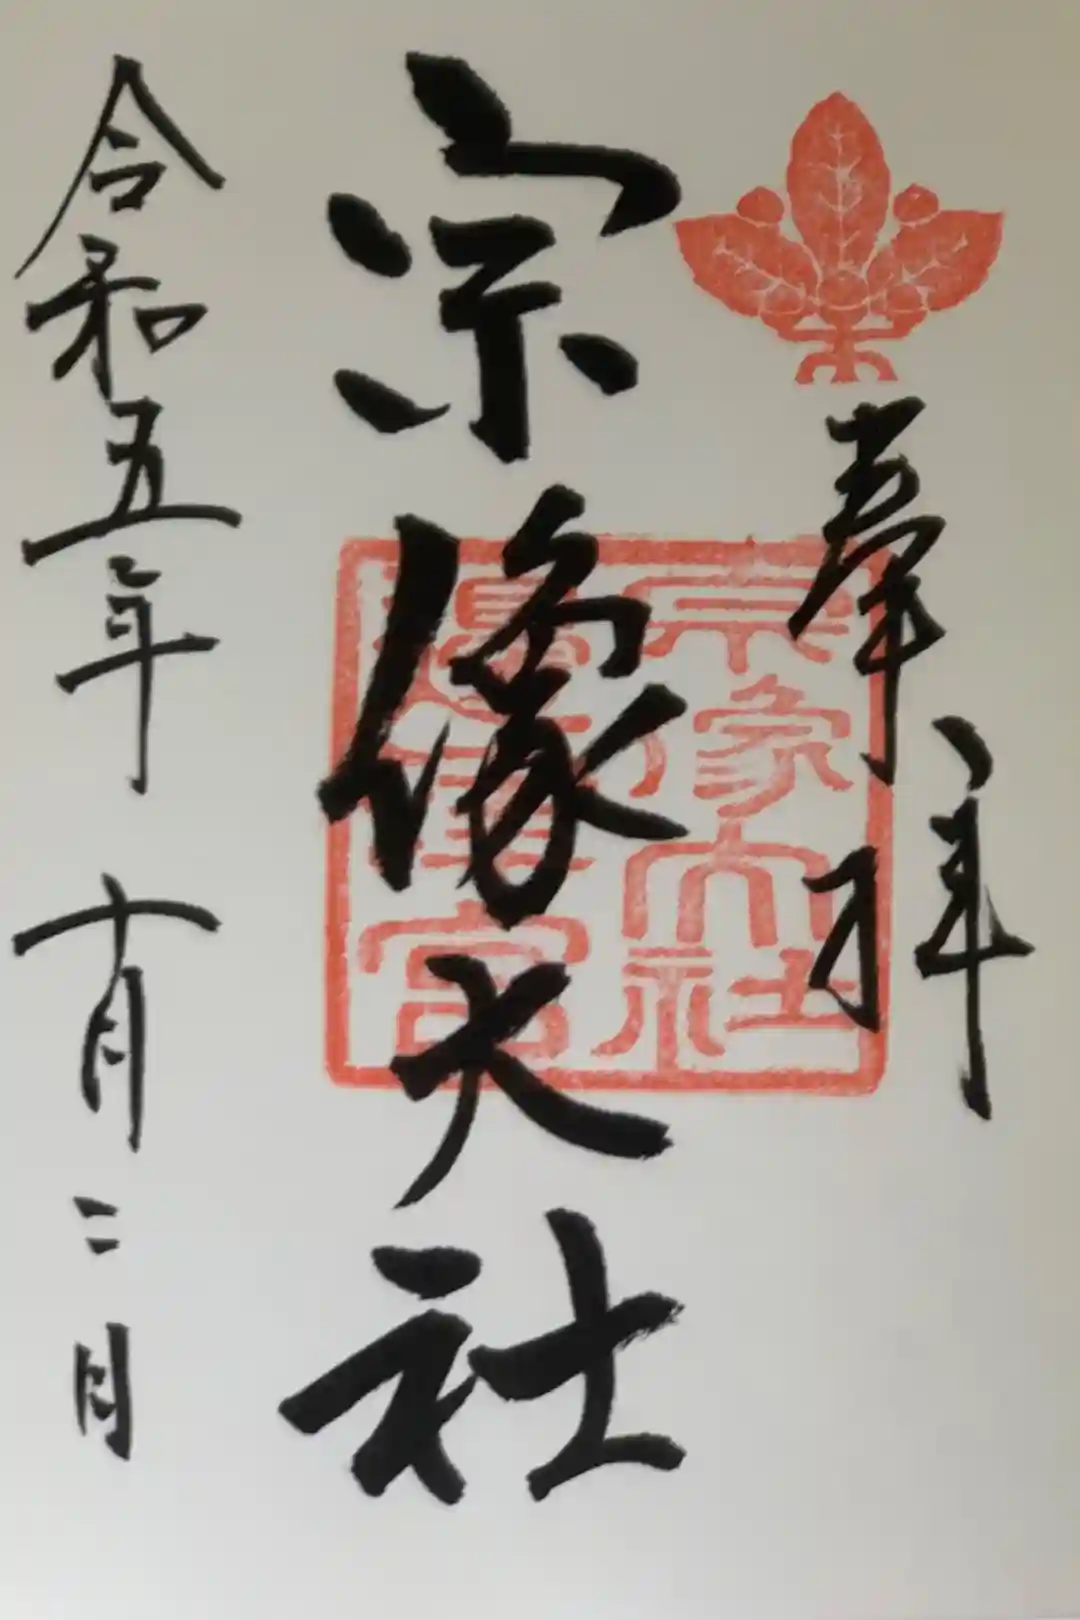 奉拝
宗像大社
宗像大社
邊津宮
令和五年 十月二日